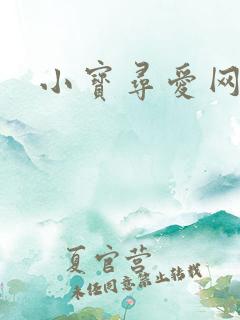 小寳尋愛网
夏官营
未经同意禁止转载